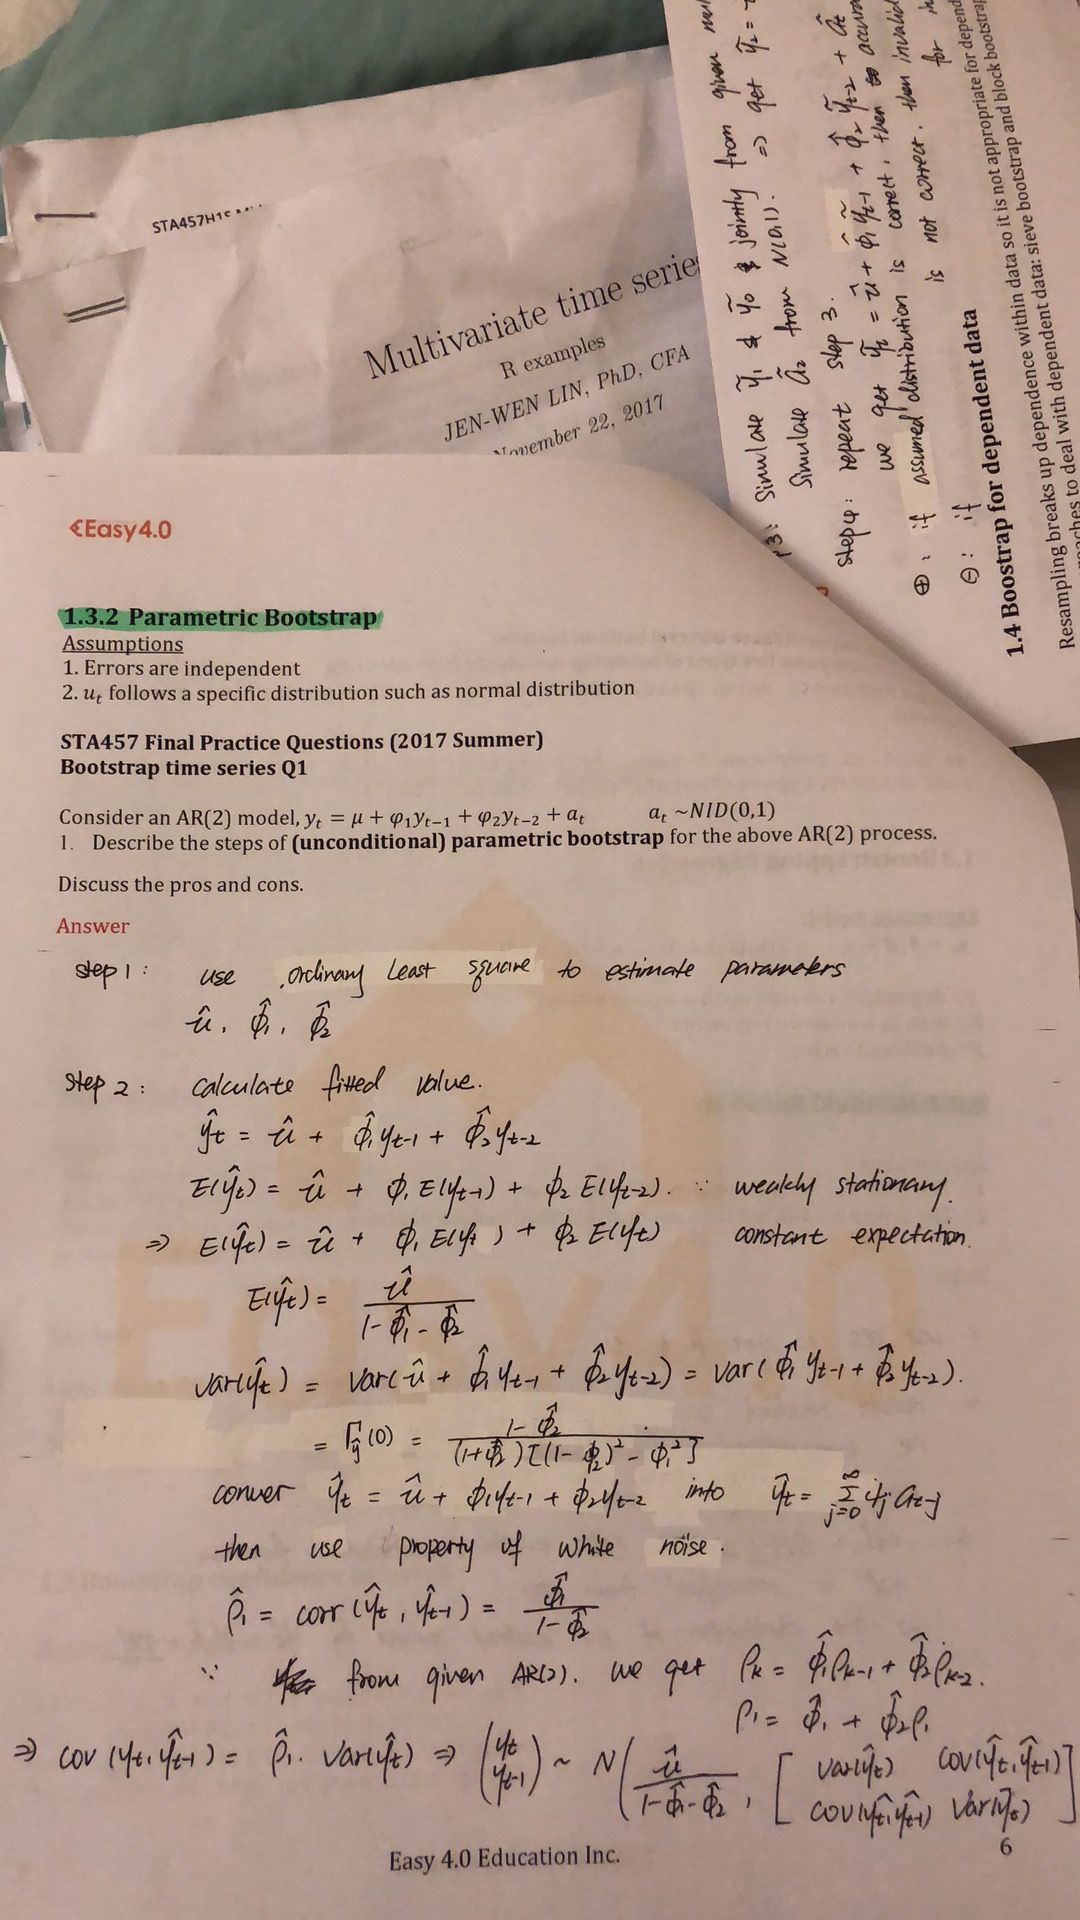 STA457H1S
Multivariate time serie
R examples
JEN-WEN LIN, PhD, CFA
November 22, 2017
p3: Simulate ỹ₁ & ỹ₀ jointly from given
Simulate ã₂ from N(0,1). ⇒ get ỹ₂ =
Step 4: repeat step 3.
we get ỹₜ = û + φ̂₁ỹₜ₋₁ + φ̂₂ỹₜ₋₂ + âₜ
⊕: if assumed distribution is correct, then accura
⊖: if is not correct, then invalid
for
1.4 Boostrap for dependent data
Resampling breaks up dependence within data so it is not appropriate for depend
reaches to deal with dependent data: sieve bootstrap and block bootstrap
€Easy4.0
1.3.2 Parametric Bootstrap
Assumptions
1. Errors are independent
2. uₜ follows a specific distribution such as normal distribution
STA457 Final Practice Questions (2017 Summer)
Bootstrap time series Q1
Consider an AR(2) model, yₜ = μ + φ₁yₜ₋₁ + φ₂yₜ₋₂ + aₜ aₜ ~NID(0,1)
1. Describe the steps of (unconditional) parametric bootstrap for the above AR(2) process.
Discuss the pros and cons.
Answer
Step 1: use ordinary least square to estimate parameters
û, φ̂₁, φ̂₂
Step 2: calculate fitted value.
ŷₜ = û + φ̂₁yₜ₋₁ + φ̂₂yₜ₋₂
E(ŷₜ) = û + φ₁E(yₜ₋₁) + φ₂E(yₜ₋₂). ∵ weakly stationary.
⇒ E(ŷₜ) = û + φ₁E(yₜ) + φ₂E(yₜ) constant expectation.
E(ŷₜ) = û / (1-φ̂₁-φ̂₂)
var(ŷₜ) = var(û + φ̂₁yₜ₋₁ + φ̂₂yₜ₋₂) = var(φ̂₁yₜ₋₁ + φ̂₂yₜ₋₂).
= Γŷ(0) = (1-φ̂₂) / (1+φ̂₂)[(1-φ₂)²-φ₁²]
conver ŷₜ = û + φ₁yₜ₋₁ + φ₂yₜ₋₂ into ŷₜ = Σ_{j=0}^{∞} ψⱼaₜ₋ⱼ
then use property of white noise.
ρ̂₁ = corr(ŷₜ, ŷₜ₋₁) = φ̂₁ / (1-φ̂₂)
∵ from given AR(2). we get ρₖ = φ̂₁ρₖ₋₁ + φ̂₂ρₖ₋₂.
ρ₁ = φ̂₁ + φ̂₂ρ₁
⇒ cov(yₜ, ŷₜ₋₁) = ρ̂₁ · var(ŷₜ) ⇒ (yₜ yₜ₋₁) ~ N(û / (1-φ̂₁-φ̂₂), [var(ŷₜ) cov(ŷₜ, ŷₜ₋₁)
cov(ŷₜ, ŷₜ₋₁) var(ŷₜ)]
6
Easy 4.0 Education Inc.